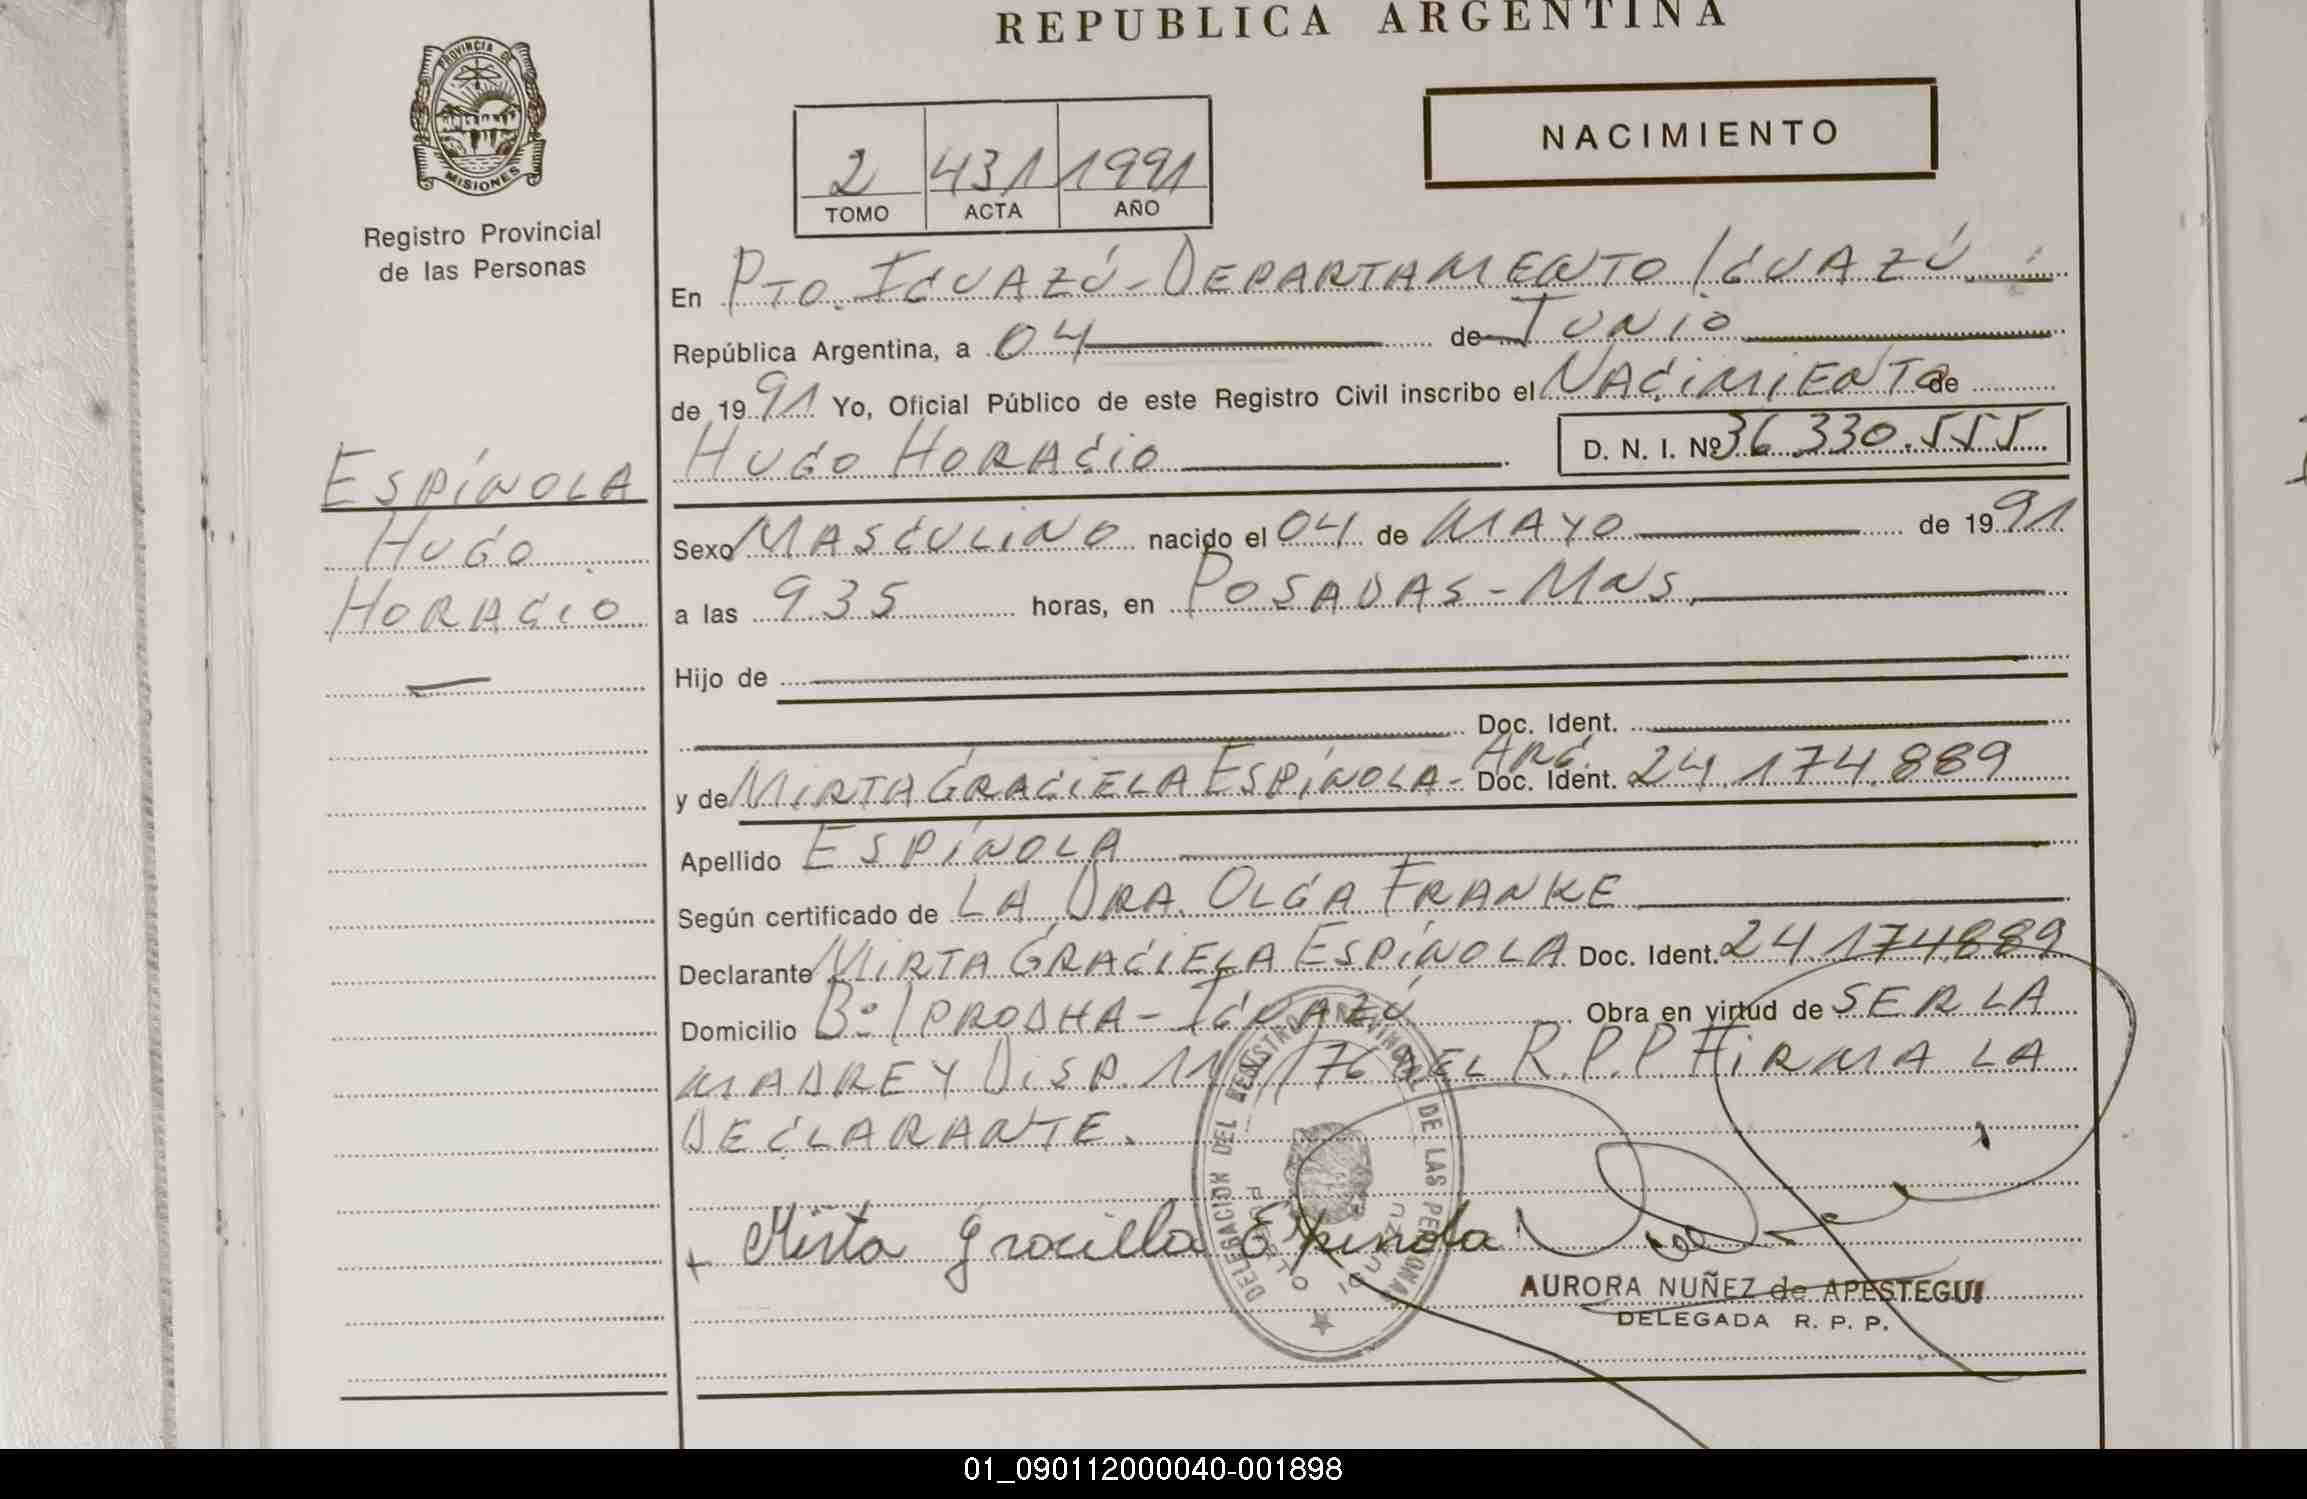 REPUBLICA ARGENTINA
PROVINCIA DE
MISIONES
Registro Provincial
de las Personas
NACIMIENTO
2 431 1991
TOMO ACTA AÑO
En PTO. IGUAZÚ - DEPARTAMENTO IGUAZÚ
República Argentina, a 04 de JUNIO
de 1991 Yo, Oficial Público de este Registro Civil inscribo el NACIMIENTO de
HUGO HORACIO D. N. I. Nº 36.330.555
ESPÍNOLA
HUGO
HORACIO
Sexo MASCULINO nacido el 04 de MAYO de 1991
a las 9.35 horas, en POSADAS - MNS.
Hijo de
Doc. Ident.
y de MIRTA GRACIELA ESPÍNOLA - ARG. Doc. Ident. 24.174.889
Apellido ESPÍNOLA
Según certificado de LA DRA. OLGA FRANKE
Declarante MIRTA GRACIELA ESPÍNOLA Doc. Ident. 24.174.889
Domicilio Bº IPRODHA - IGUAZÚ Obra en virtud de SER LA
MADRE Y DISP. 11/76 DEL R.P.P. FIRMA LA
DECLARANTE.
DELEGACION DEL REGISTRO PROVINCIAL DE LAS PERSONAS
PUERTO IGUAZU
+ Mirta Graciella Espinola
AURORA NUÑEZ de APESTEGUI
DELEGADA R. P. P.
01_090112000040-001898